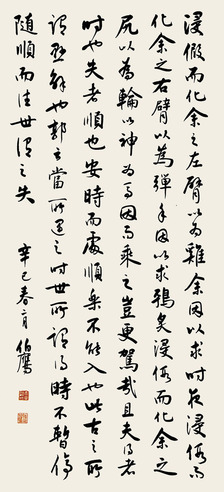 浸假而化余之左臂以為雞余因以求时夜浸假而
化余之右臂以為彈余因以求鴞炙浸假而化余之
尻以為輪以神為馬余因而乘之豈更駕哉且夫得者
时也失者順也安時而處順哀樂不能入也此古之所
謂縣解也郭云當所遇之时世所謂得時不暫停
隨順而往世謂之失
辛巳春月 伯鷹